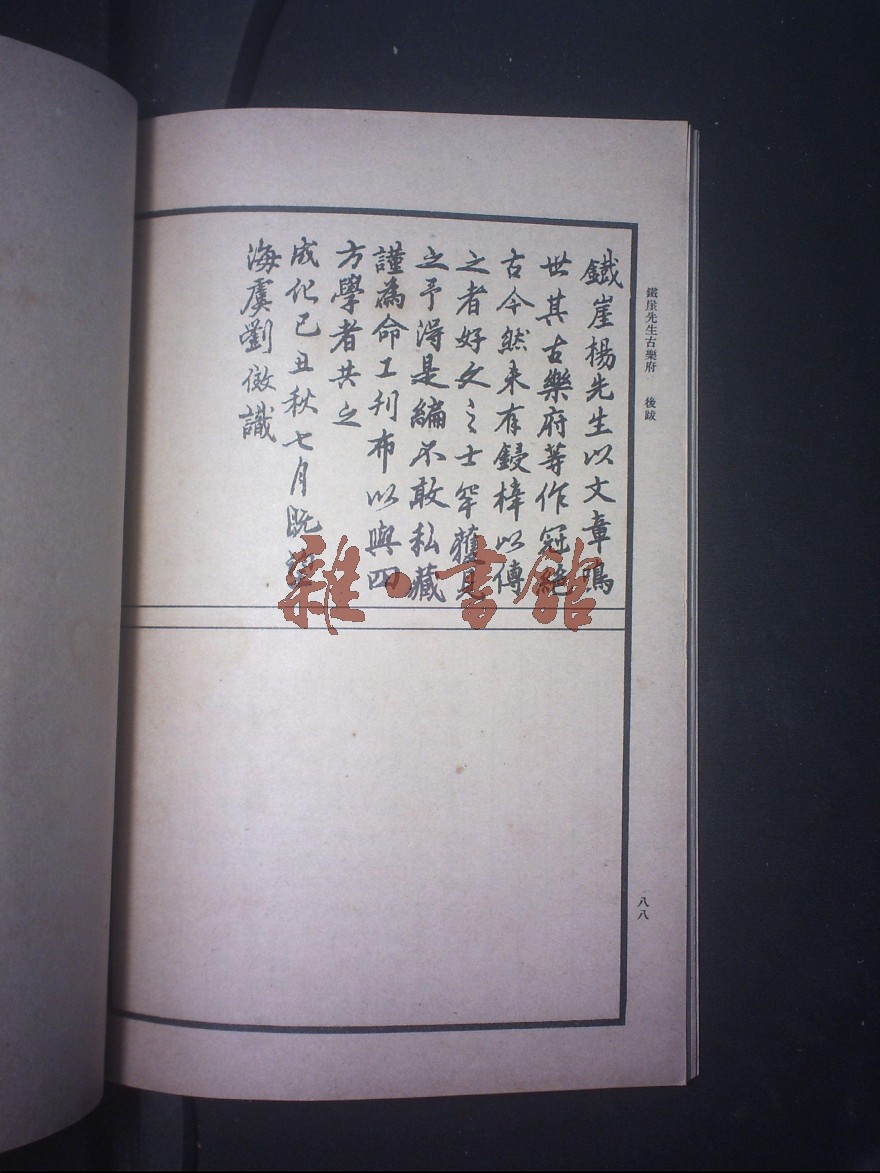 鐵崖先生古樂府 後跋
鐵崖楊先生以文章鳴
世其古樂府等作冠絶
古今然未有鋟梓以傳
之者好文之士罕獲見
之予得是編不敢私藏
謹為命工刊布以與四
方學者共之
成化己丑秋七月既望
海虞劉傚識
八八
雜·書館